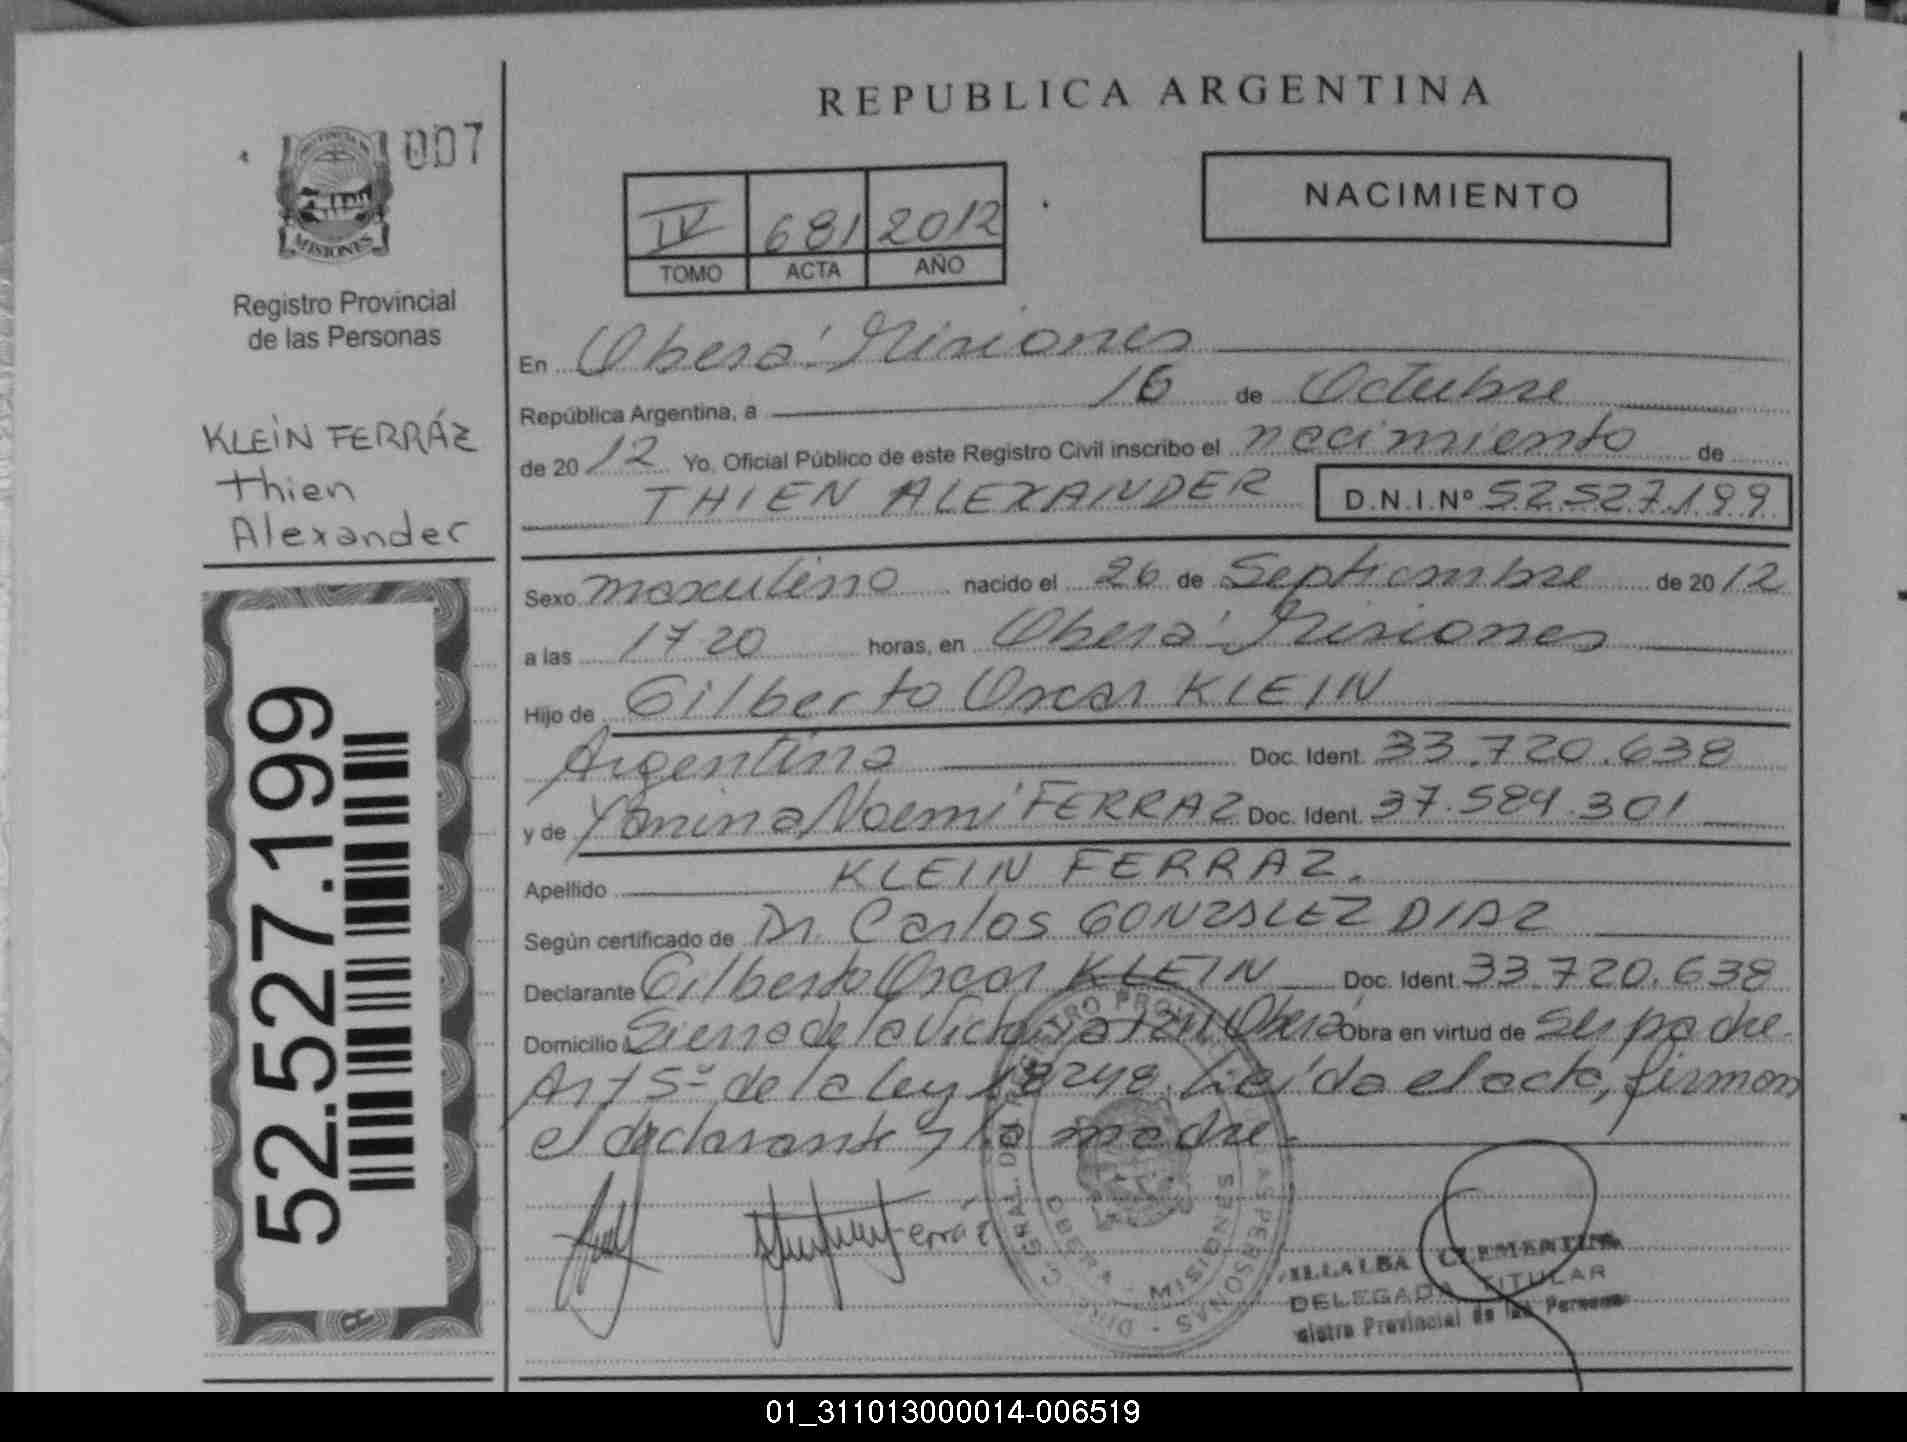 REPUBLICA ARGENTINA
007
MISIONES
Registro Provincial
de las Personas
KLEIN FERRÁZ
Thien
Alexander
52.527.199
IV 681 2012
TOMO ACTA AÑO
NACIMIENTO
En Oberá Misiones
República Argentina, a 16 de Octubre
de 2012 Yo, Oficial Público de este Registro Civil inscribo el nacimiento de
THIEN ALEXANDER D.N.I.Nº 52.527.199
Sexo masculino nacido el 26 de Septiembre de 2012
a las 17 20 horas, en Oberá Misiones
Hijo de Gilberto Oscar KLEIN
Argentino Doc. Ident. 33.720.638
y de Yanina Noemí FERRAZ Doc. Ident. 37.584.301
Apellido KLEIN FERRAZ.
Según certificado de Dr. Carlos GONZALEZ DIAZ
Declarante Gilberto Oscar KLEIN Doc. Ident. 33.720.638
Domicilio Sierra de la Victoria 1211 Oberá Obra en virtud de ser padre.
Art 5º de la Ley 18248. Leída el acta, firman
el declarante y la madre.
Ferráz
OBERA - MISIONES
VILLALBA CLEMENTINA
DELEGADA TITULAR
Registro Provincial de las Personas
01_311013000014-006519